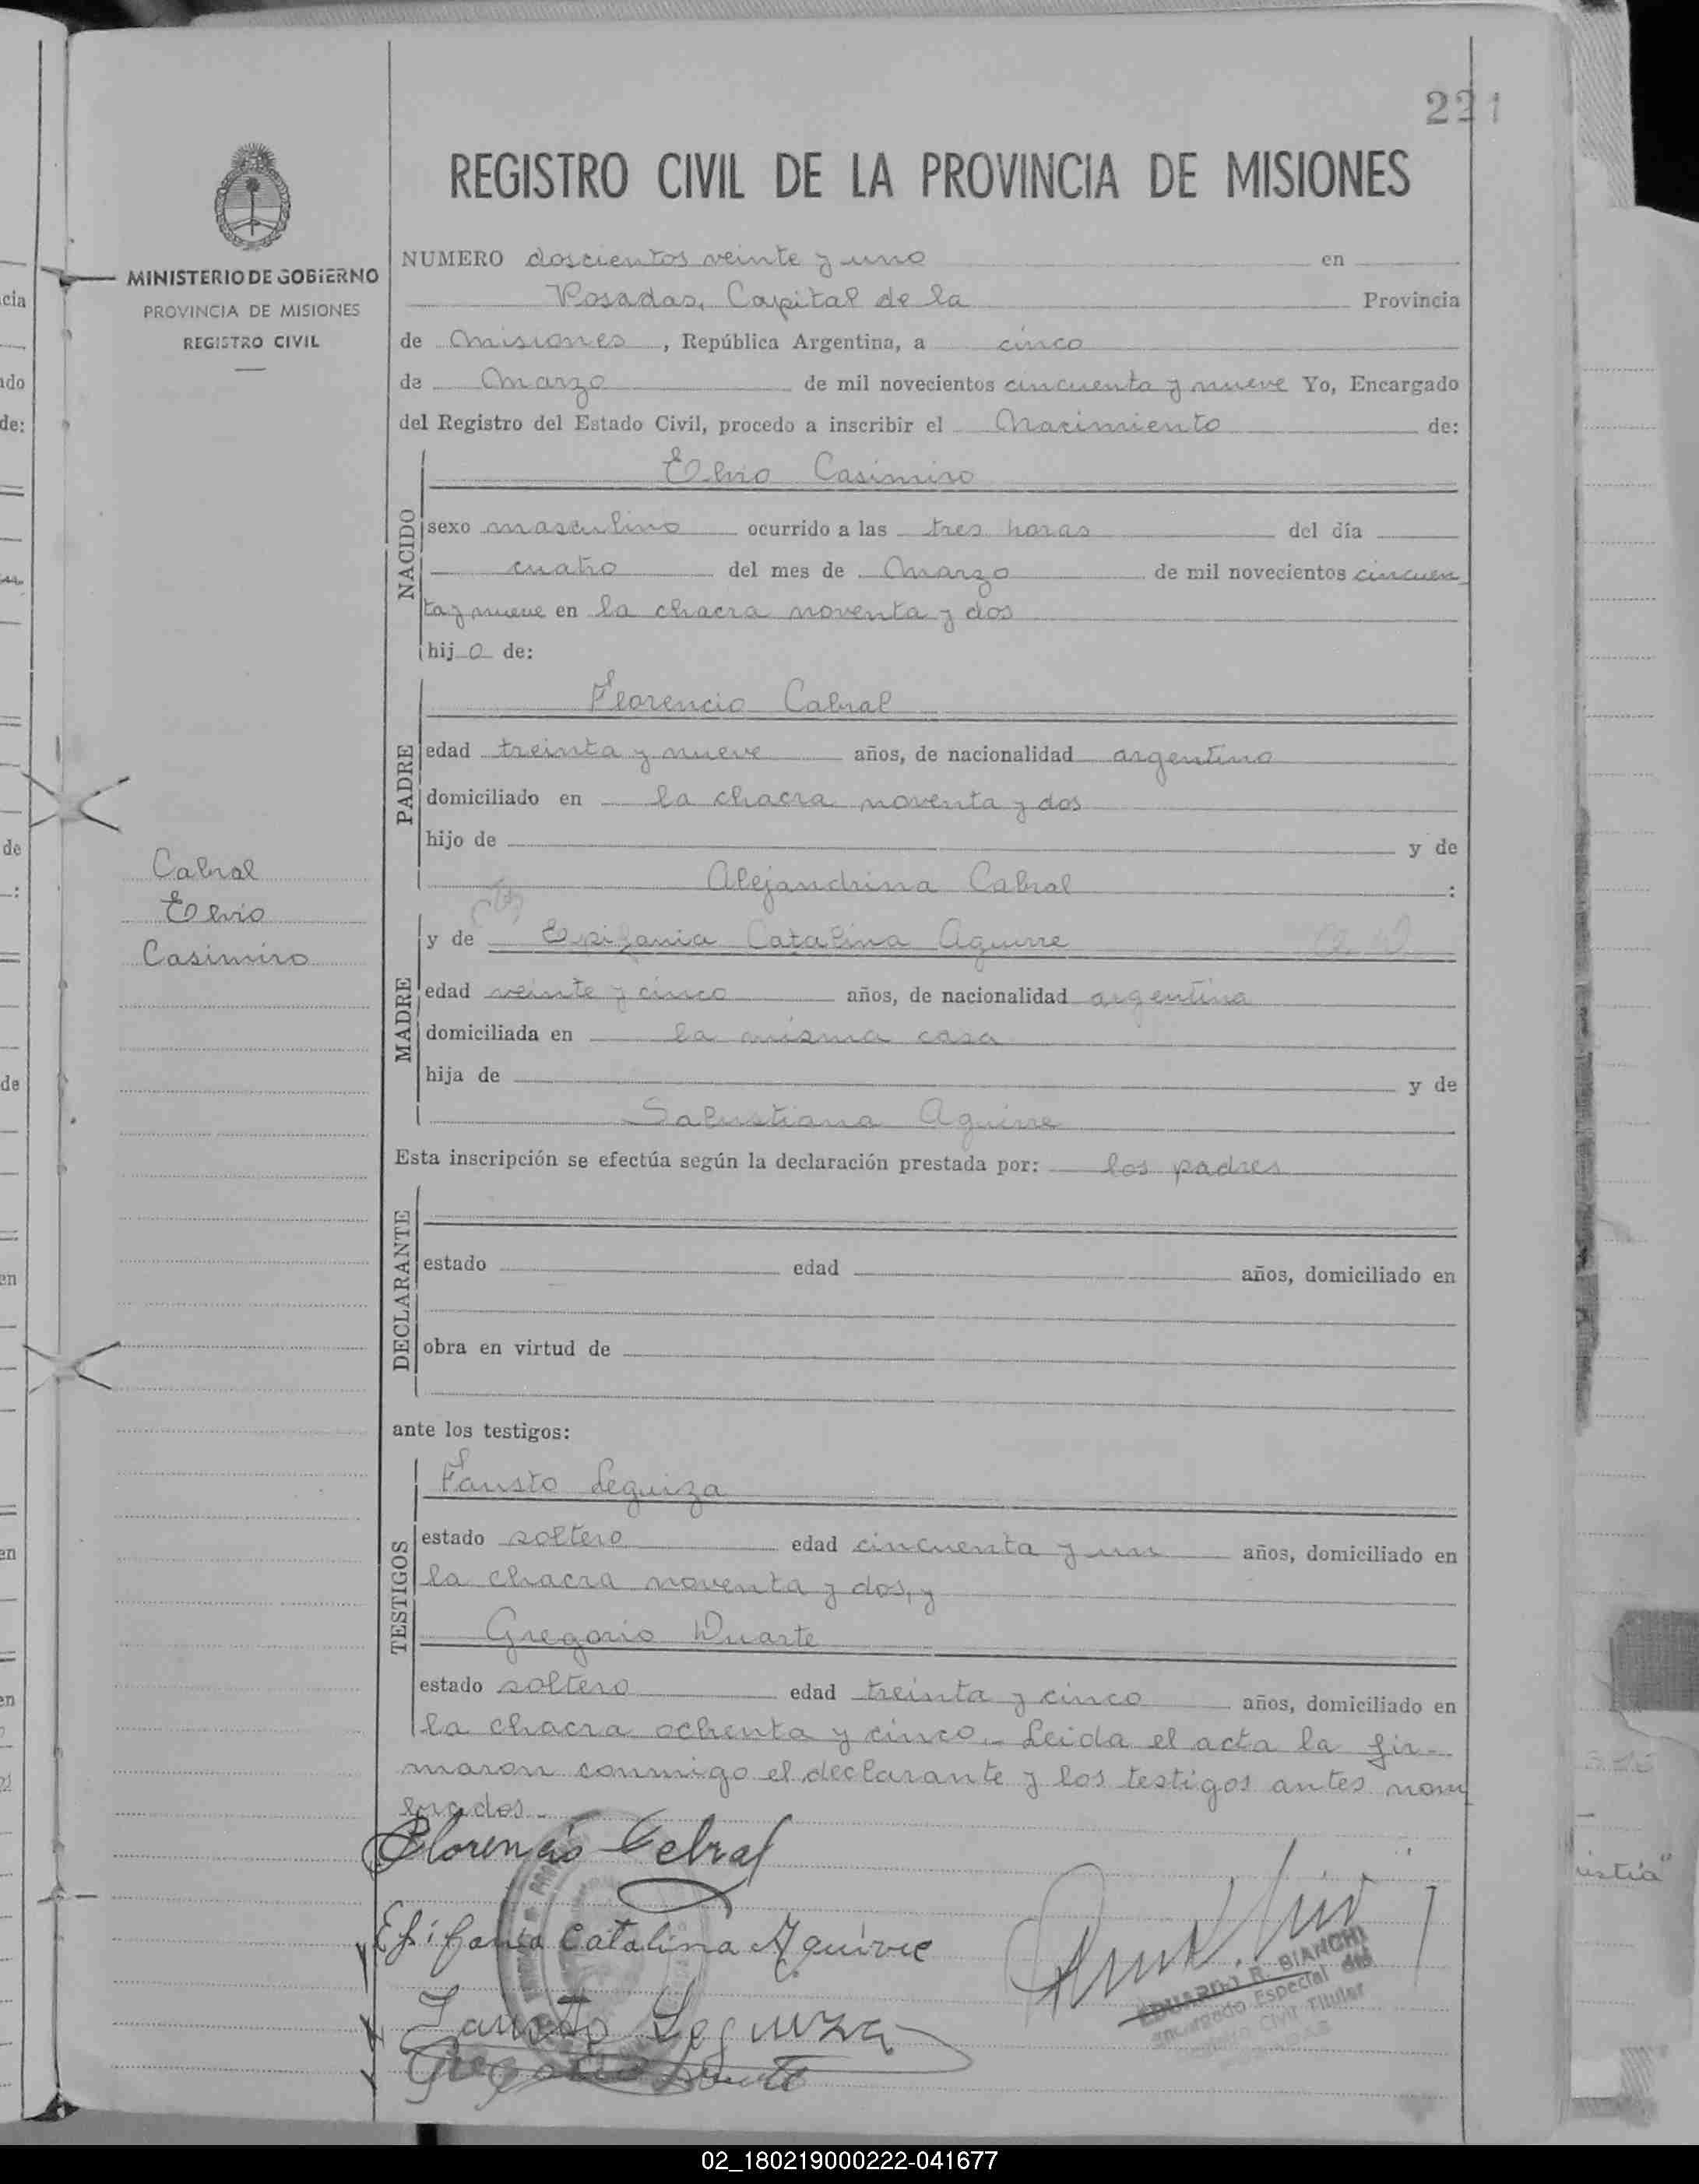 221
REGISTRO CIVIL DE LA PROVINCIA DE MISIONES
MINISTERIO DE GOBIERNO
PROVINCIA DE MISIONES
REGISTRO CIVIL
NUMERO doscientos veinte y uno en
Posadas, Capital de la Provincia
de Misiones, República Argentina, a cinco
de Marzo de mil novecientos cincuenta y nueve Yo, Encargado
del Registro del Estado Civil, procedo a inscribir el Nacimiento de:
NACIDO
Elvio Casimiro
sexo masculino ocurrido a las tres horas del día
cuatro del mes de Marzo de mil novecientos cincuen
ta y nueve en la chacra noventa y dos
hijo de:
PADRE
Florencio Cabral
edad treinta y nueve años, de nacionalidad argentino
domiciliado en la chacra noventa y dos
hijo de y de
Alejandrina Cabral :
Cabral
Elvio
Casimiro
MADRE
y de Epifania Catalina Aguirre
edad veinte y cinco años, de nacionalidad argentina
domiciliada en la misma casa
hija de y de
Salustiana Aguirre
Esta inscripción se efectúa según la declaración prestada por: los padres
DECLARANTE
estado edad años, domiciliado en
obra en virtud de
ante los testigos:
TESTIGOS
Fausto Leguiza
estado soltero edad cincuenta y un años, domiciliado en
la chacra noventa y dos, y
Gregorio Duarte
estado soltero edad treinta y cinco años, domiciliado en
la chacra ochenta y cinco.- Leida el acta la fir-
maron conmigo el declarante y los testigos antes nom
brados.-
Florencio Cabral
Epifania Catalina Aguirre
Fausto Leguiza
Gregorio Duarte
EDUARDO R. BIANCHI
Encargado Especial del
Registro Civil Titular
02_180219000222-041677